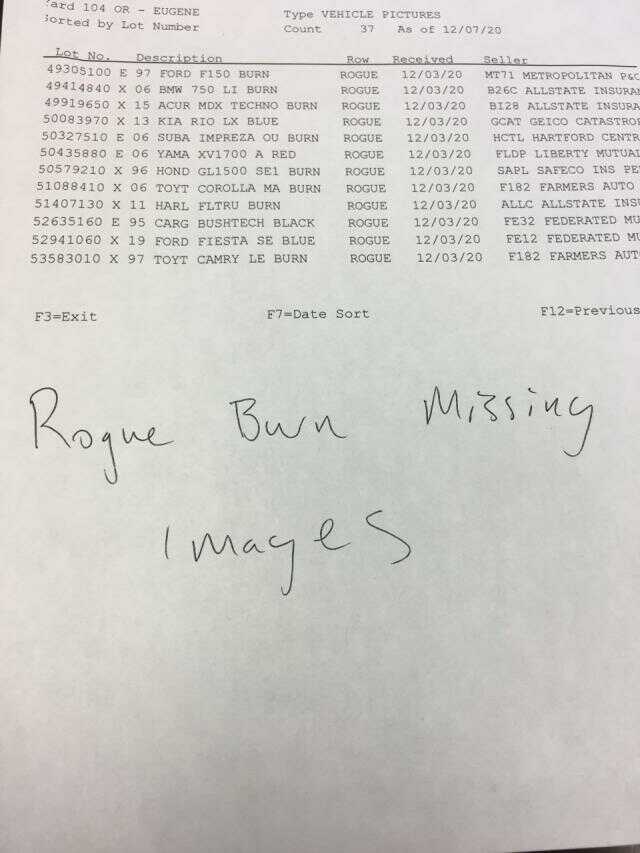 Yard 104 OR - EUGENE Type VEHICLE PICTURES
Sorted by Lot Number Count 37 As of 12/07/20
Lot No. Description Row Received Seller
49305100 E 97 FORD F150 BURN ROGUE 12/03/20 MT71 METROPOLITAN P&C
49414840 X 06 BMW 750 LI BURN ROGUE 12/03/20 B26C ALLSTATE INSURAN
49919650 X 15 ACUR MDX TECHNO BURN ROGUE 12/03/20 BI28 ALLSTATE INSURA
50083970 X 13 KIA RIO LX BLUE ROGUE 12/03/20 GCAT GEICO CATASTROP
50327510 E 06 SUBA IMPREZA OU BURN ROGUE 12/03/20 HCTL HARTFORD CENTR
50435880 E 06 YAMA XV1700 A RED ROGUE 12/03/20 FLDP LIBERTY MUTUAL
50579210 X 96 HOND GL1500 SE1 BURN ROGUE 12/03/20 SAPL SAFECO INS PE
51088410 X 06 TOYT COROLLA MA BURN ROGUE 12/03/20 F182 FARMERS AUTO
51407130 X 11 HARL FLTRU BURN ROGUE 12/03/20 ALLC ALLSTATE INSU
52635160 E 95 CARG BUSHTECH BLACK ROGUE 12/03/20 FE32 FEDERATED MU
52941060 X 19 FORD FIESTA SE BLUE ROGUE 12/03/20 FE12 FEDERATED MU
53583010 X 97 TOYT CAMRY LE BURN ROGUE 12/03/20 F182 FARMERS AUT
F3=Exit F7=Date Sort F12=Previous
Rogue Burn Missing
Images